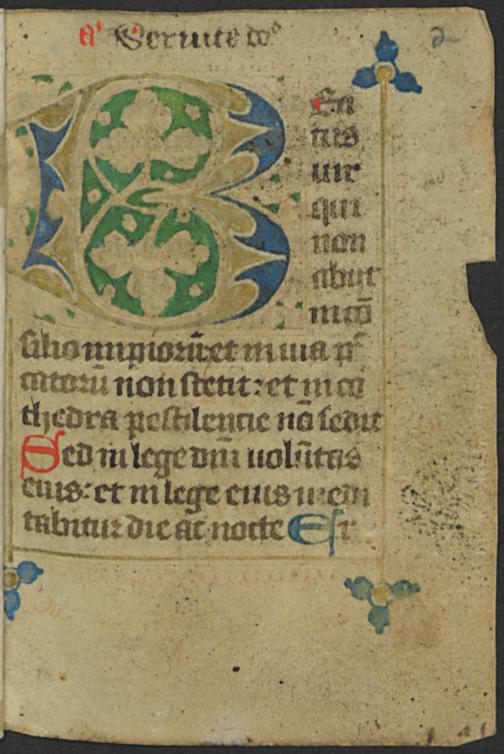 a Seruite do
2
Ea
tus
uir
qui
non
abijt
in co
silio impiorū et in uia pc
catorū non stetit: et in ca
thedra pestilencie nō sedit
Sed in lege dm̄ uolūtas
eius: et in lege eius medi
tabitur die ac nocte Et